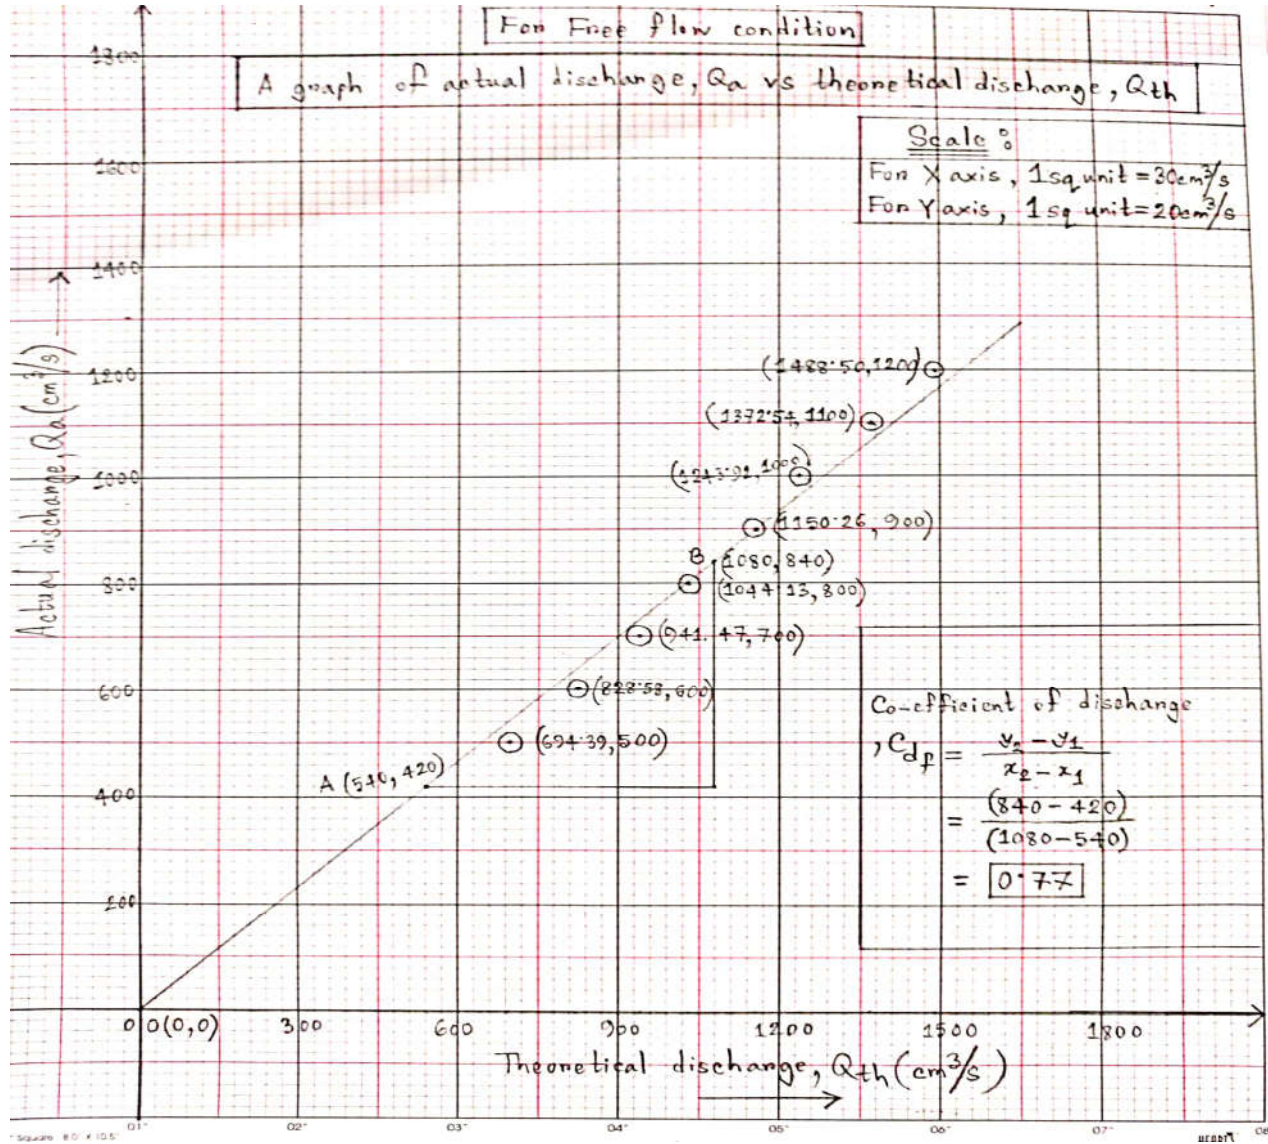 For Free flow condition
A graph of actual discharge, Qa vs theoretical discharge, Qth
Scale:
For X axis, 1sq unit = 30cm³/s
For Y axis, 1sq unit = 20cm³/s
1800
1600
1400
1200
1000
800
600
400
200
Actual discharge, Qa (cm³/s) →
(1488.50, 1200)
(1372.54, 1100)
(1243.91, 1000)
(1150.26, 900)
B (1080, 840)
(1044.13, 800)
(941.47, 700)
(828.58, 600)
(694.39, 500)
A (540, 420)
Co-efficient of discharge
, Cdf = y₂ - y₁ / x₂ - x₁
= (840 - 420) / (1080 - 540)
= 0.77
0 0(0,0) 300 600 900 1200 1500 1800
Theoretical discharge, Qth (cm³/s)
→
Square 8.0" X 10.5" 01" 02" 03" 04" 05" 06" 07" 08